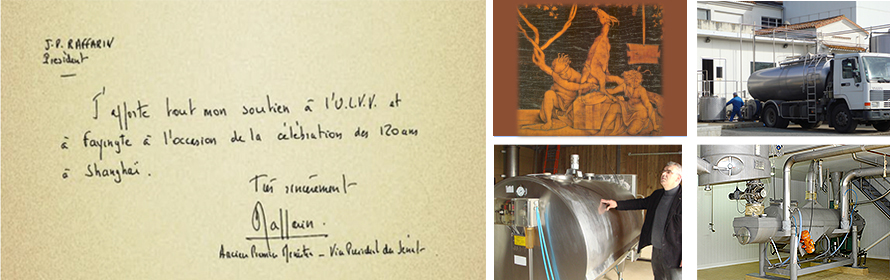 J.P. RAFFARIN
Président
J'apporte tout mon soutien à l'U.L.V.V. et
à Fayingte à l'occasion de la célébration des 120 ans
à Shanghai.
Très sincèrement
Raffarin.
Ancien Premier Ministre - Vice Président du Sénat